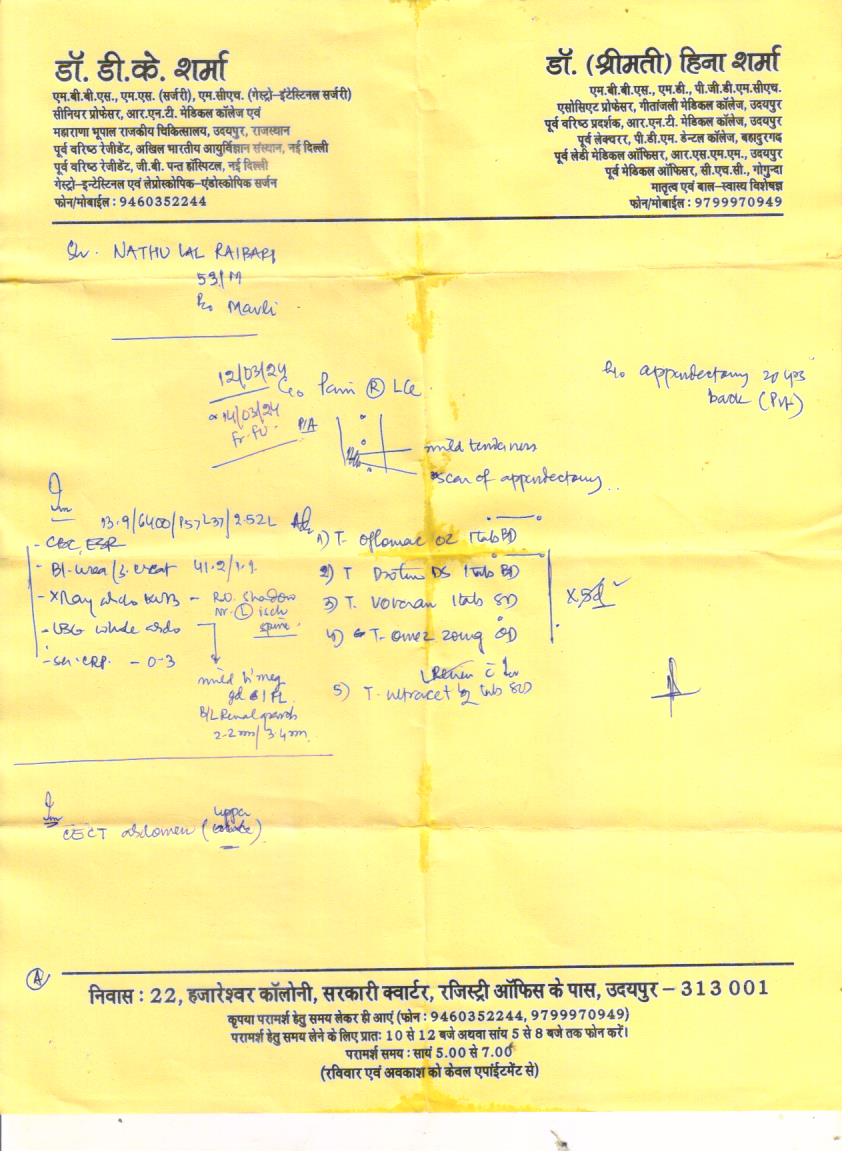 डॉ. डी.के. शर्मा
एम.बी.बी.एस., एम.एस. (सर्जरी), एम.सीएच. (गेस्ट्रो-इंटेस्टिनल सर्जरी)
सीनियर प्रोफेसर, आर.एन.टी. मेडिकल कॉलेज एवं
महाराणा भूपाल राजकीय चिकित्सालय, उदयपुर, राजस्थान
पूर्व वरिष्ठ रेजीडेंट, अखिल भारतीय आयुर्विज्ञान संस्थान, नई दिल्ली
पूर्व वरिष्ठ रेजीडेंट, जी.बी. पन्त हॉस्पिटल, नई दिल्ली
गेस्ट्रो-इन्टेस्टिनल एवं लेप्रोस्कोपिक-एंडोस्कोपिक सर्जन
फोन/मोबाईल : 9460352244
डॉ. (श्रीमती) हिना शर्मा
एम.बी.बी.एस., एम.डी., पी.जी.डी.एम.सीएच.
एसोसिएट प्रोफेसर, गीतांजली मेडिकल कॉलेज, उदयपुर
पूर्व वरिष्ठ प्रदर्शक, आर.एन.टी. मेडिकल कॉलेज, उदयपुर
पूर्व लेक्चरर, पी.डी.एम. डेन्टल कॉलेज, बहादुरगढ़
पूर्व लेडी मेडिकल ऑफिसर, आर.एस.एम.एम., उदयपुर
पूर्व मेडिकल ऑफिसर, सी.एच.सी., गोगुन्दा
मातृत्व एवं बाल-स्वास्थ्य विशेषज्ञ
फोन/मोबाईल : 9799970949
Sh. NATHU LAL RAIBARI
53/M
R/o Mavli
12/03/24
C/o Pain (R)
14/03/24
H/o appendectomy 20 yrs
back
P/A
mild tenderness
scar of appendectomy
13.9/6400/P57 L37/2.52L Adv
- CBC, ESR
- Bl. urea/S. creat 41.2/1.1
- XRay abdo KUB - R.O. Shadow
Nr. (L) isch
spine
- USG whole abdo
- Sr. CRP - 0.3
mild h'meg
B/L Renal
2.2mm/3.4mm
1) T- Oflomac OZ 1tab BD
2) T DS 1tab BD
3) T. Voveran 1tab SD
4) T- omez 20mg OD
Review
5) T. ultracet 1/2 tab SD
X 5d
CECT abdomen (upper
whole)
(A)
निवास : 22, हजारेश्वर कॉलोनी, सरकारी क्वार्टर, रजिस्ट्री ऑफिस के पास, उदयपुर – 313 001
कृपया परामर्श हेतु समय लेकर ही आएं (फोन : 9460352244, 9799970949)
परामर्श हेतु समय लेने के लिए प्रातः 10 से 12 बजे अथवा सांय 5 से 8 बजे तक फोन करें।
परामर्श समय : सायं 5.00 से 7.00
(रविवार एवं अवकाश को केवल एपांईटमेंट से)